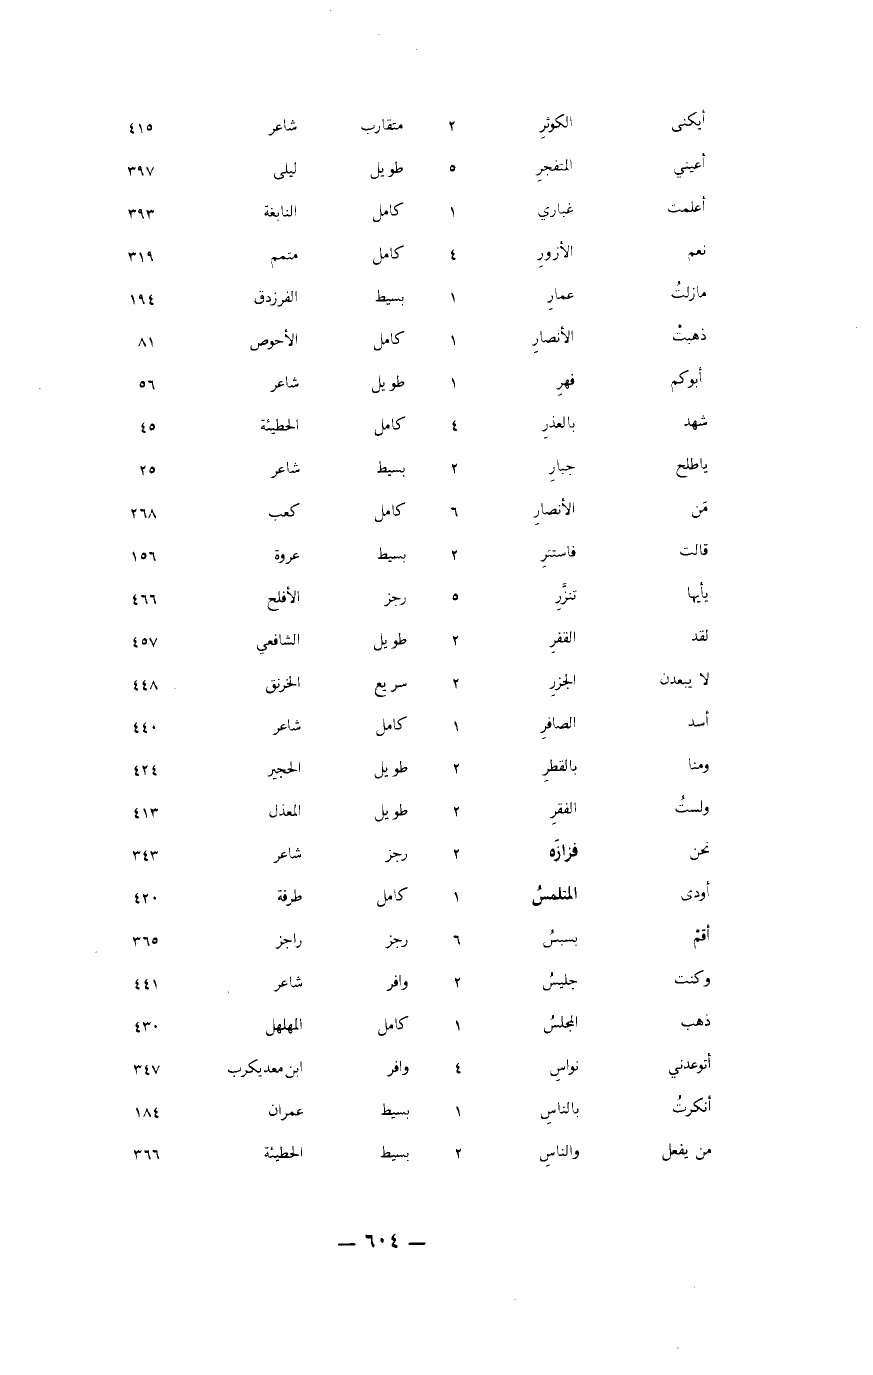 أيكنى الكوثرِ ٢ متقارب شاعر ٤١٥
أعيني المتفجرِ ٥ طويل ليلى ٣٩٧
أعلمت غباري ١ كامل النابغة ٣٩٣
نعم الأزورِ ٤ كامل متمم ٣١٩
مازلتُ عمارِ ١ بسيط الفرزدق ١٩٤
ذهبتْ الأنصارِ ١ كامل الأحوص ٨١
أبوكم فهرِ ١ طويل شاعر ٥٦
شهد بالعذرِ ٤ كامل الحطيئة ٤٥
ياطلح جبارِ ٢ بسيط شاعر ٢٥
مَن الأنصارِ ٦ كامل كعب ٢٦٨
قالت فاستترِ ٢ بسيط عروة ١٥٦
يأيها تنزَّرِ ٥ رجز الأفلح ٤٦٦
لقد القفرِ ٢ طويل الشافعي ٤٥٧
لا يبعدن الجزرِ ٢ سريع الخرنق ٤٤٨
أسد الصافرِ ١ كامل شاعر ٤٤٠
ومنا بالقطرِ ٢ طويل الحجير ٤٢٤
ولستُ الفقرِ ٢ طويل المعذل ٤١٣
نحن فزازَه ٢ رجز شاعر ٣٤٣
أودى المتلمسُ ١ كامل طرفة ٤٢٠
أقمْ بسبسُ ٦ رجز راجز ٣٦٥
وكنت جليسُ ٢ وافر شاعر ٤٤١
ذهب المجلسُ ١ كامل المهلهل ٤٣٠
أتوعدني نواسِ ٤ وافر ابن معديكرب ٣٤٧
أنكرتُ بالناسِ ١ بسيط عمران ١٨٤
من يفعل والناسِ ٢ بسيط الحطيئة ٣٦٦
— ٦٠٤ —